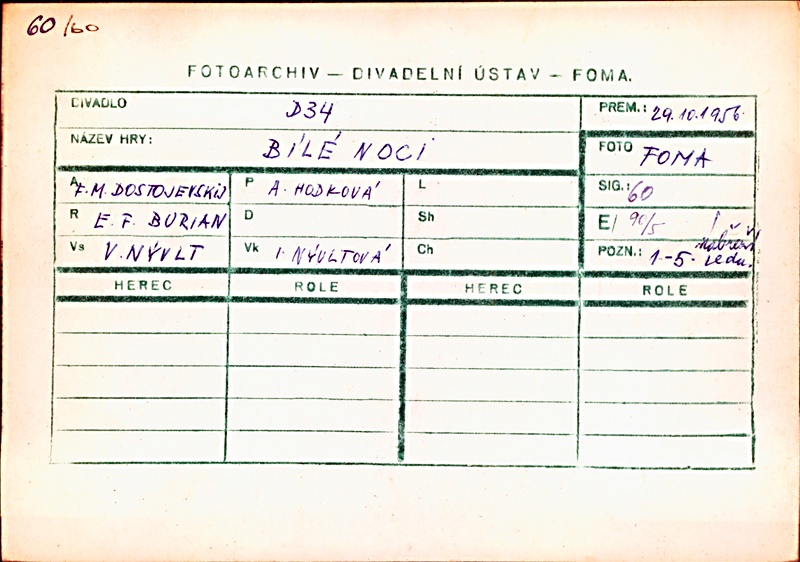 60/60
FOTOARCHIV — DIVADELNÍ ÚSTAV — FOMA.
DIVADLO D34 PREM.: 29.10.1956.
NÁZEV HRY: BÍLÉ NOCI FOTO FOMA
A F.M. DOSTOJEVSKIJ P A. HODKOVÁ L SIG.: 60
R E. F. BURIAN D Sh E/ 90/5
Vs V. NÝVLT Vk I. NÝVLTOVÁ Ch POZN.: 1.-5.
HEREC ROLE HEREC ROLE